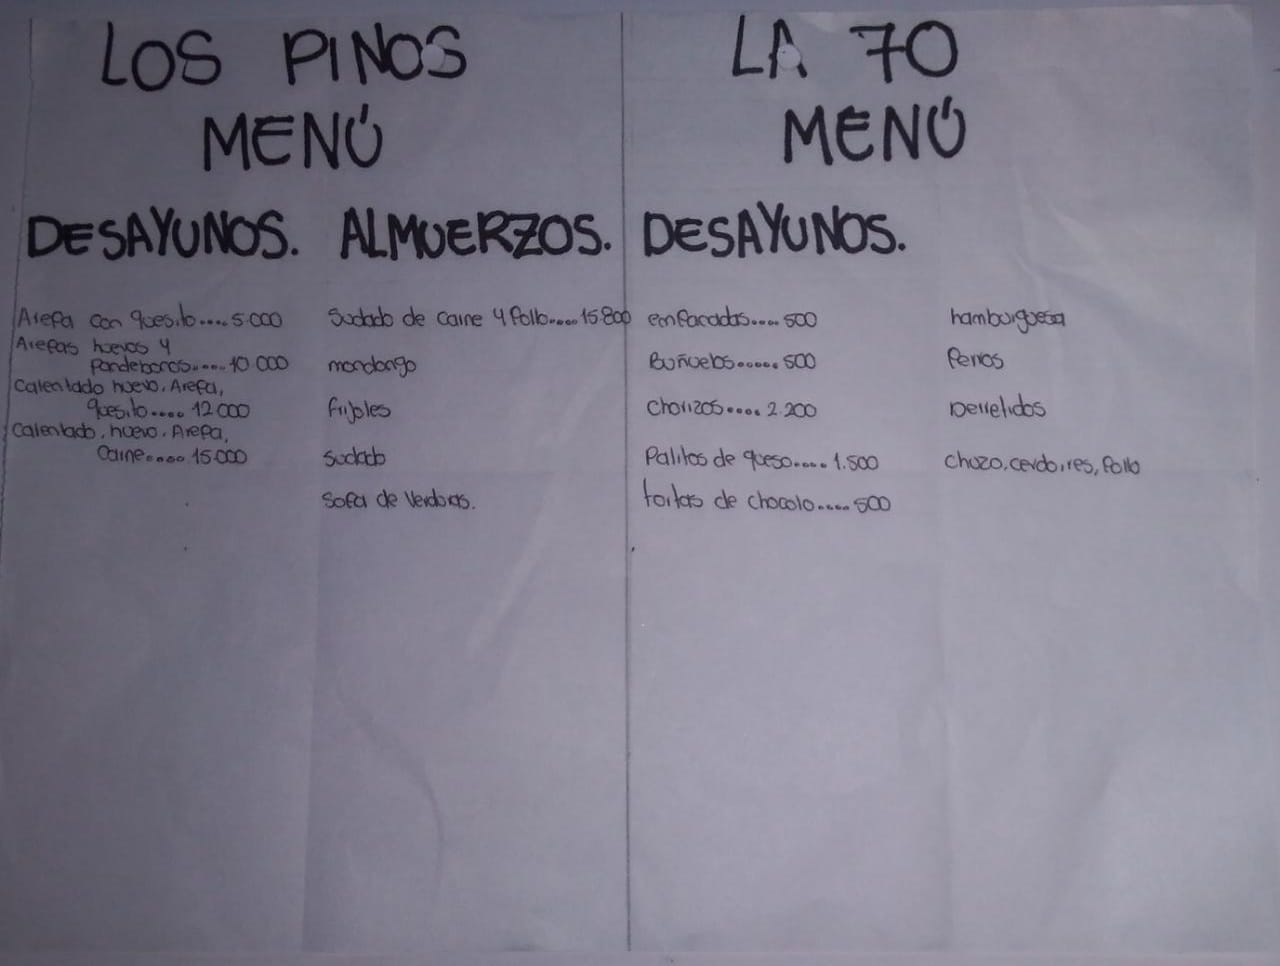 LOS PINOS
MENÚ
DESAYUNOS.
Arepa con quesito....5.000
Arepas huevos y
Pandebonos......10 000
Calentado huevo, Arepa,
quesito.... 12.000
Calentado, huevo, Arepa,
Carne.... 15.000
ALMUERZOS.
Sudado de carne y Pollo....15.800
mondongo
frijoles
sudado
Sopa de Verduras.
LA 70
MENÚ
DESAYUNOS.
empanadas.... 500
Buñuelos...... 500
Chorizos.... 2.200
Palitos de queso.... 1.500
tortas de chocolo.... 500
hamburguesa
Perros
Derretidos
Chuzo, cerdo, res, Pollo